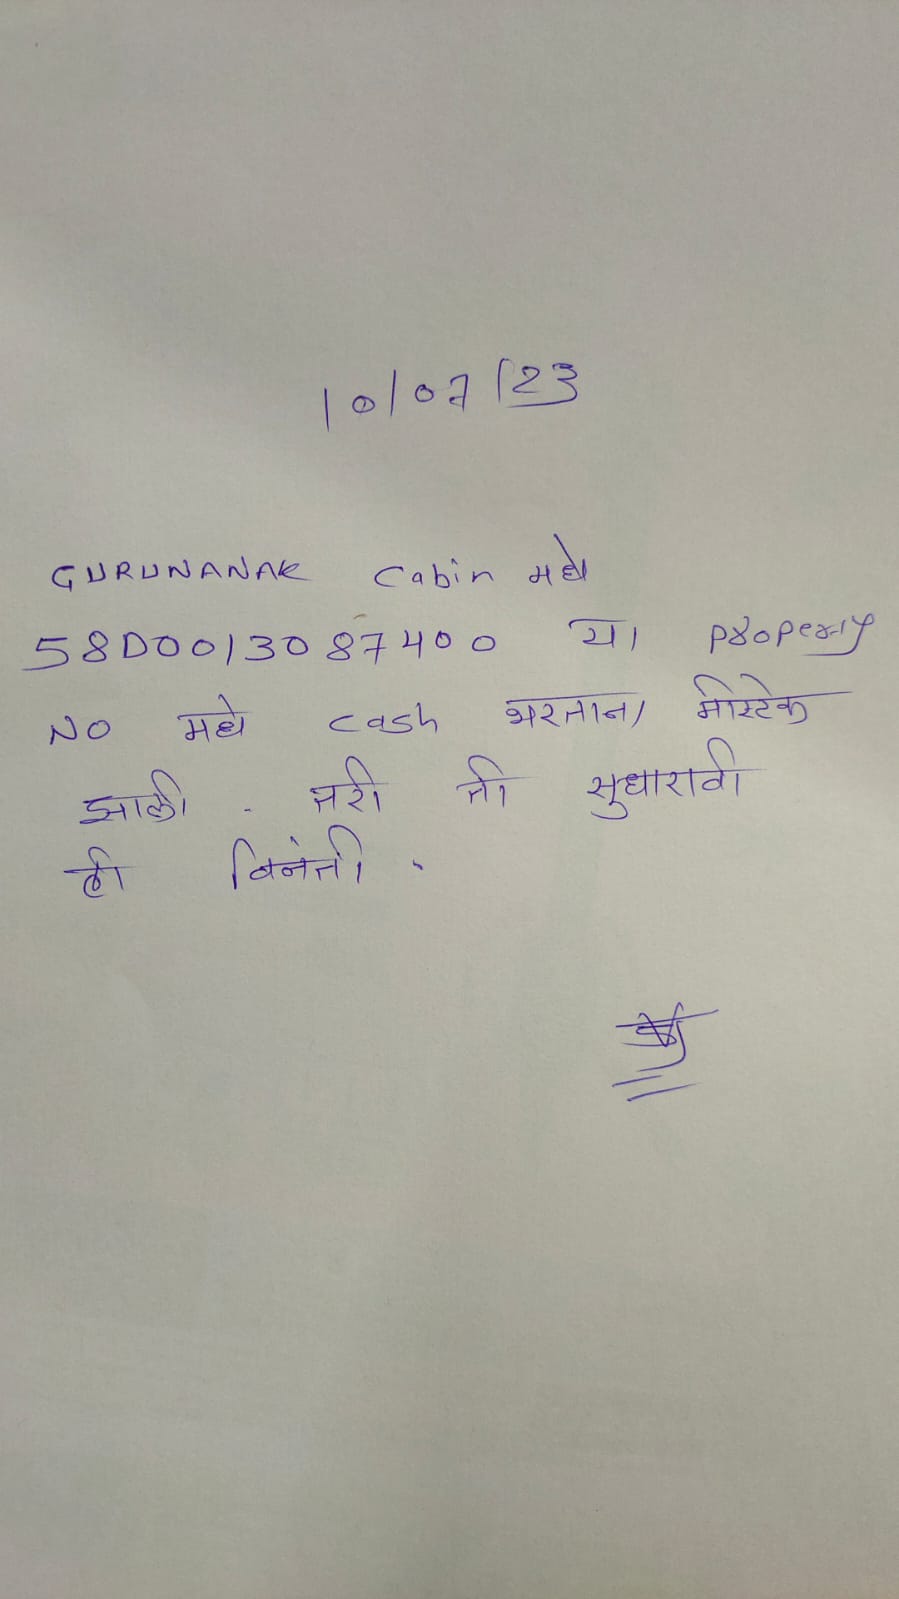 10/07/23
GURUNANAK Cabin मधे
58D0013087400 या property
NO मधे cash भरताना मीस्टेक
झाली. तरी ती सुधारावी
ही विनंती.